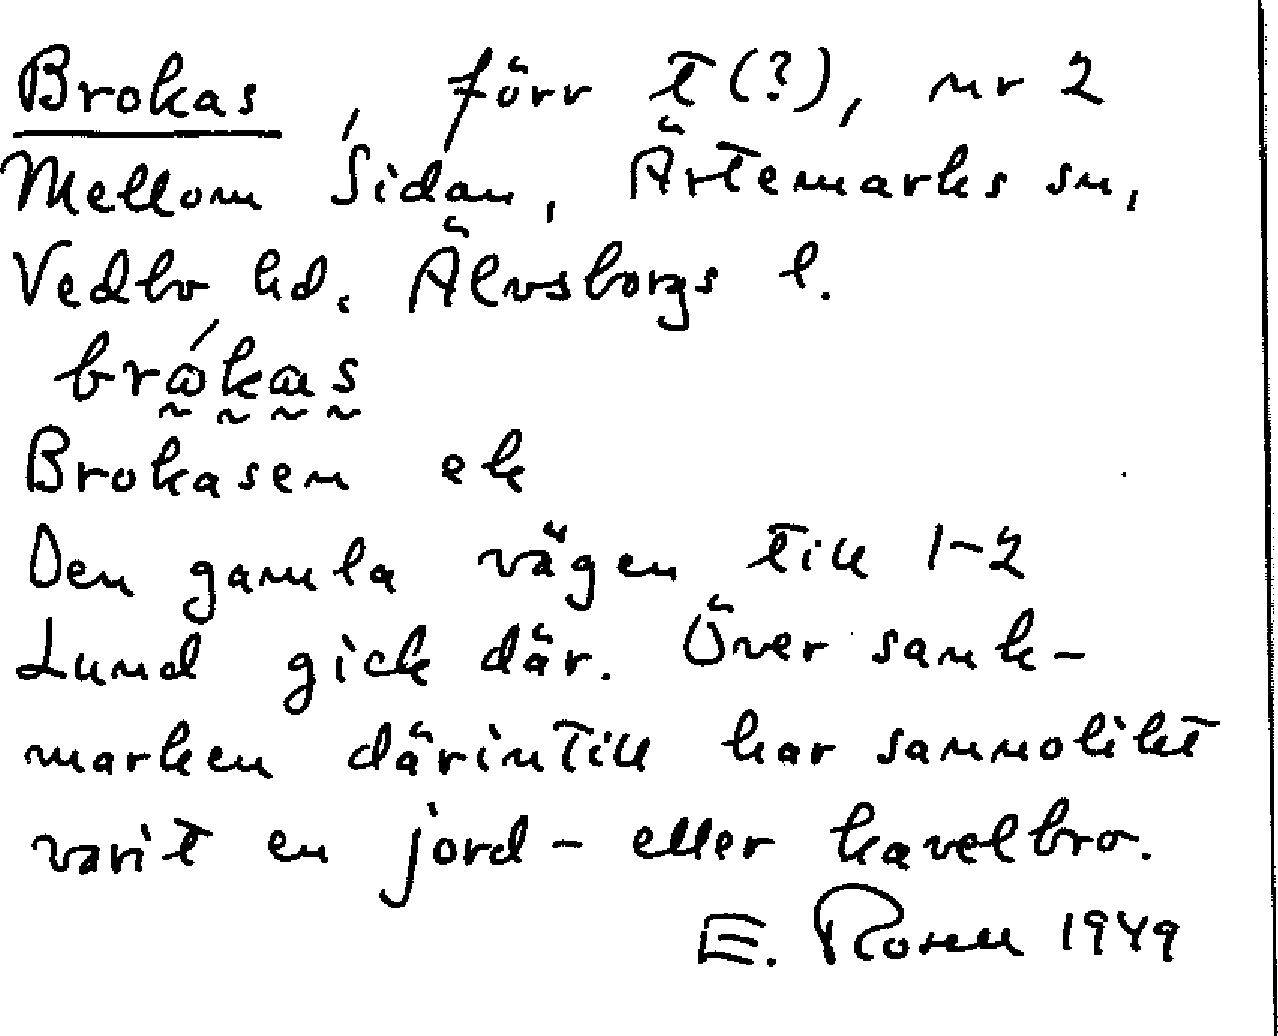 Brokas, förr t(?), nr 2
Mellom Sidan, Ärtemarks sn,
Vedbo hd. Älvsborgs l.
brώkas
Brokasen ek
Den gamla vägen till 1-2
Lund gick där. Över sank-
marken därintill har sannolikt
varit en jord- eller kavelbro.
E. Rosell 1949